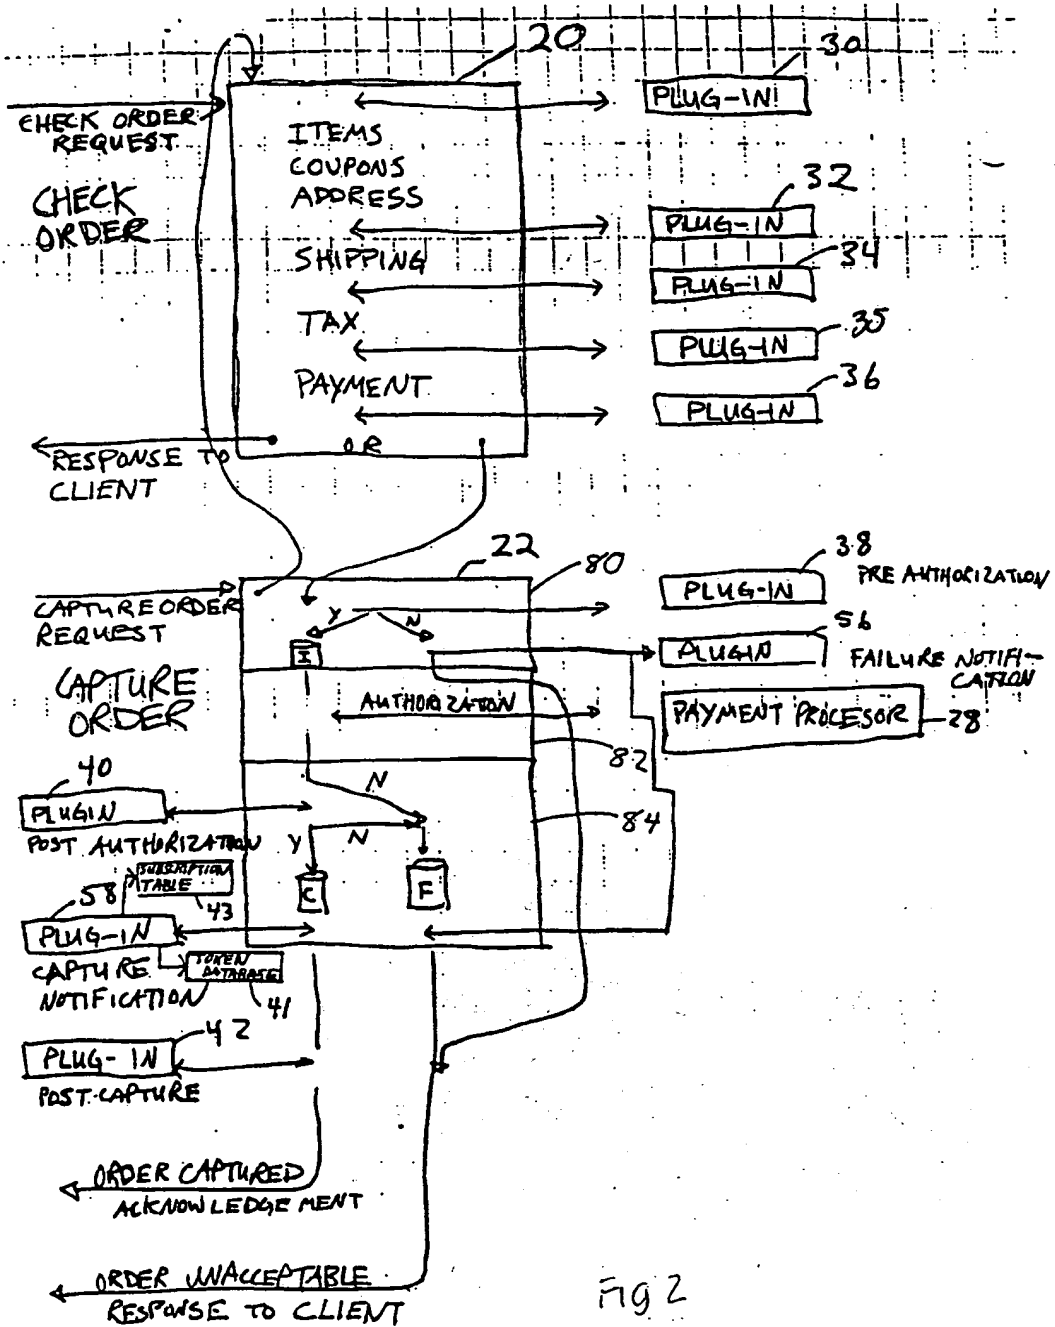 20
30
PLUG-IN
CHECK ORDER
REQUEST
ITEMS
COUPONS
ADDRESS
CHECK
ORDER
32
PLUG-IN
SHIPPING
34
PLUG-IN
TAX
35
PLUG-IN
PAYMENT
36
PLUG-IN
OR
RESPONSE TO
CLIENT
22
80
38
PLUG-IN
PRE AUTHORIZATION
CAPTURE ORDER
REQUEST
Y
N
I
56
PLUGIN
FAILURE NOTIFI-
CATION
CAPTURE
ORDER
AUTHORIZATION
PAYMENT PROCESOR
28
82
40
PLUGIN
POST AUTHORIZATION
N
84
Y
N
SUBSCRIPTION
TABLE
43
C
F
58
PLUG-IN
CAPTURE
NOTIFICATION
TOKEN
DATABASE
41
42
PLUG-IN
POST-CAPTURE
ORDER CAPTURED
ACKNOWLEDGEMENT
ORDER UNACCEPTABLE
RESPONSE TO CLIENT
Fig 2